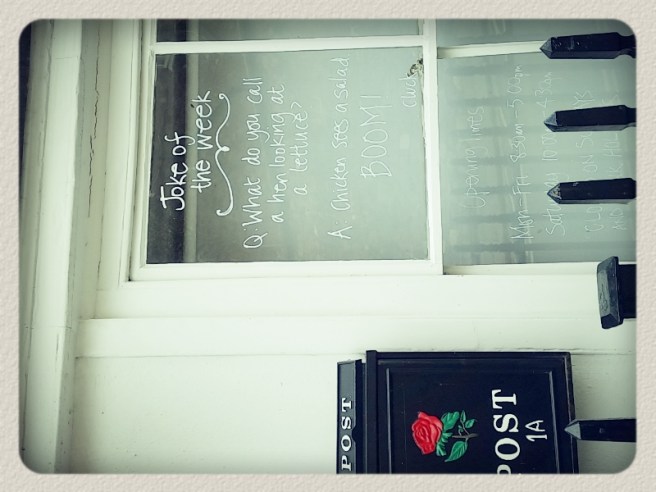 Joke of
the week
Q: What do you call
a hen looking at
a lettuce?
A: Chicken sees a salad
BOOM!
Cluck
Opening times
Mon-Fri 8.30am-5.00pm
POST
POST
1A